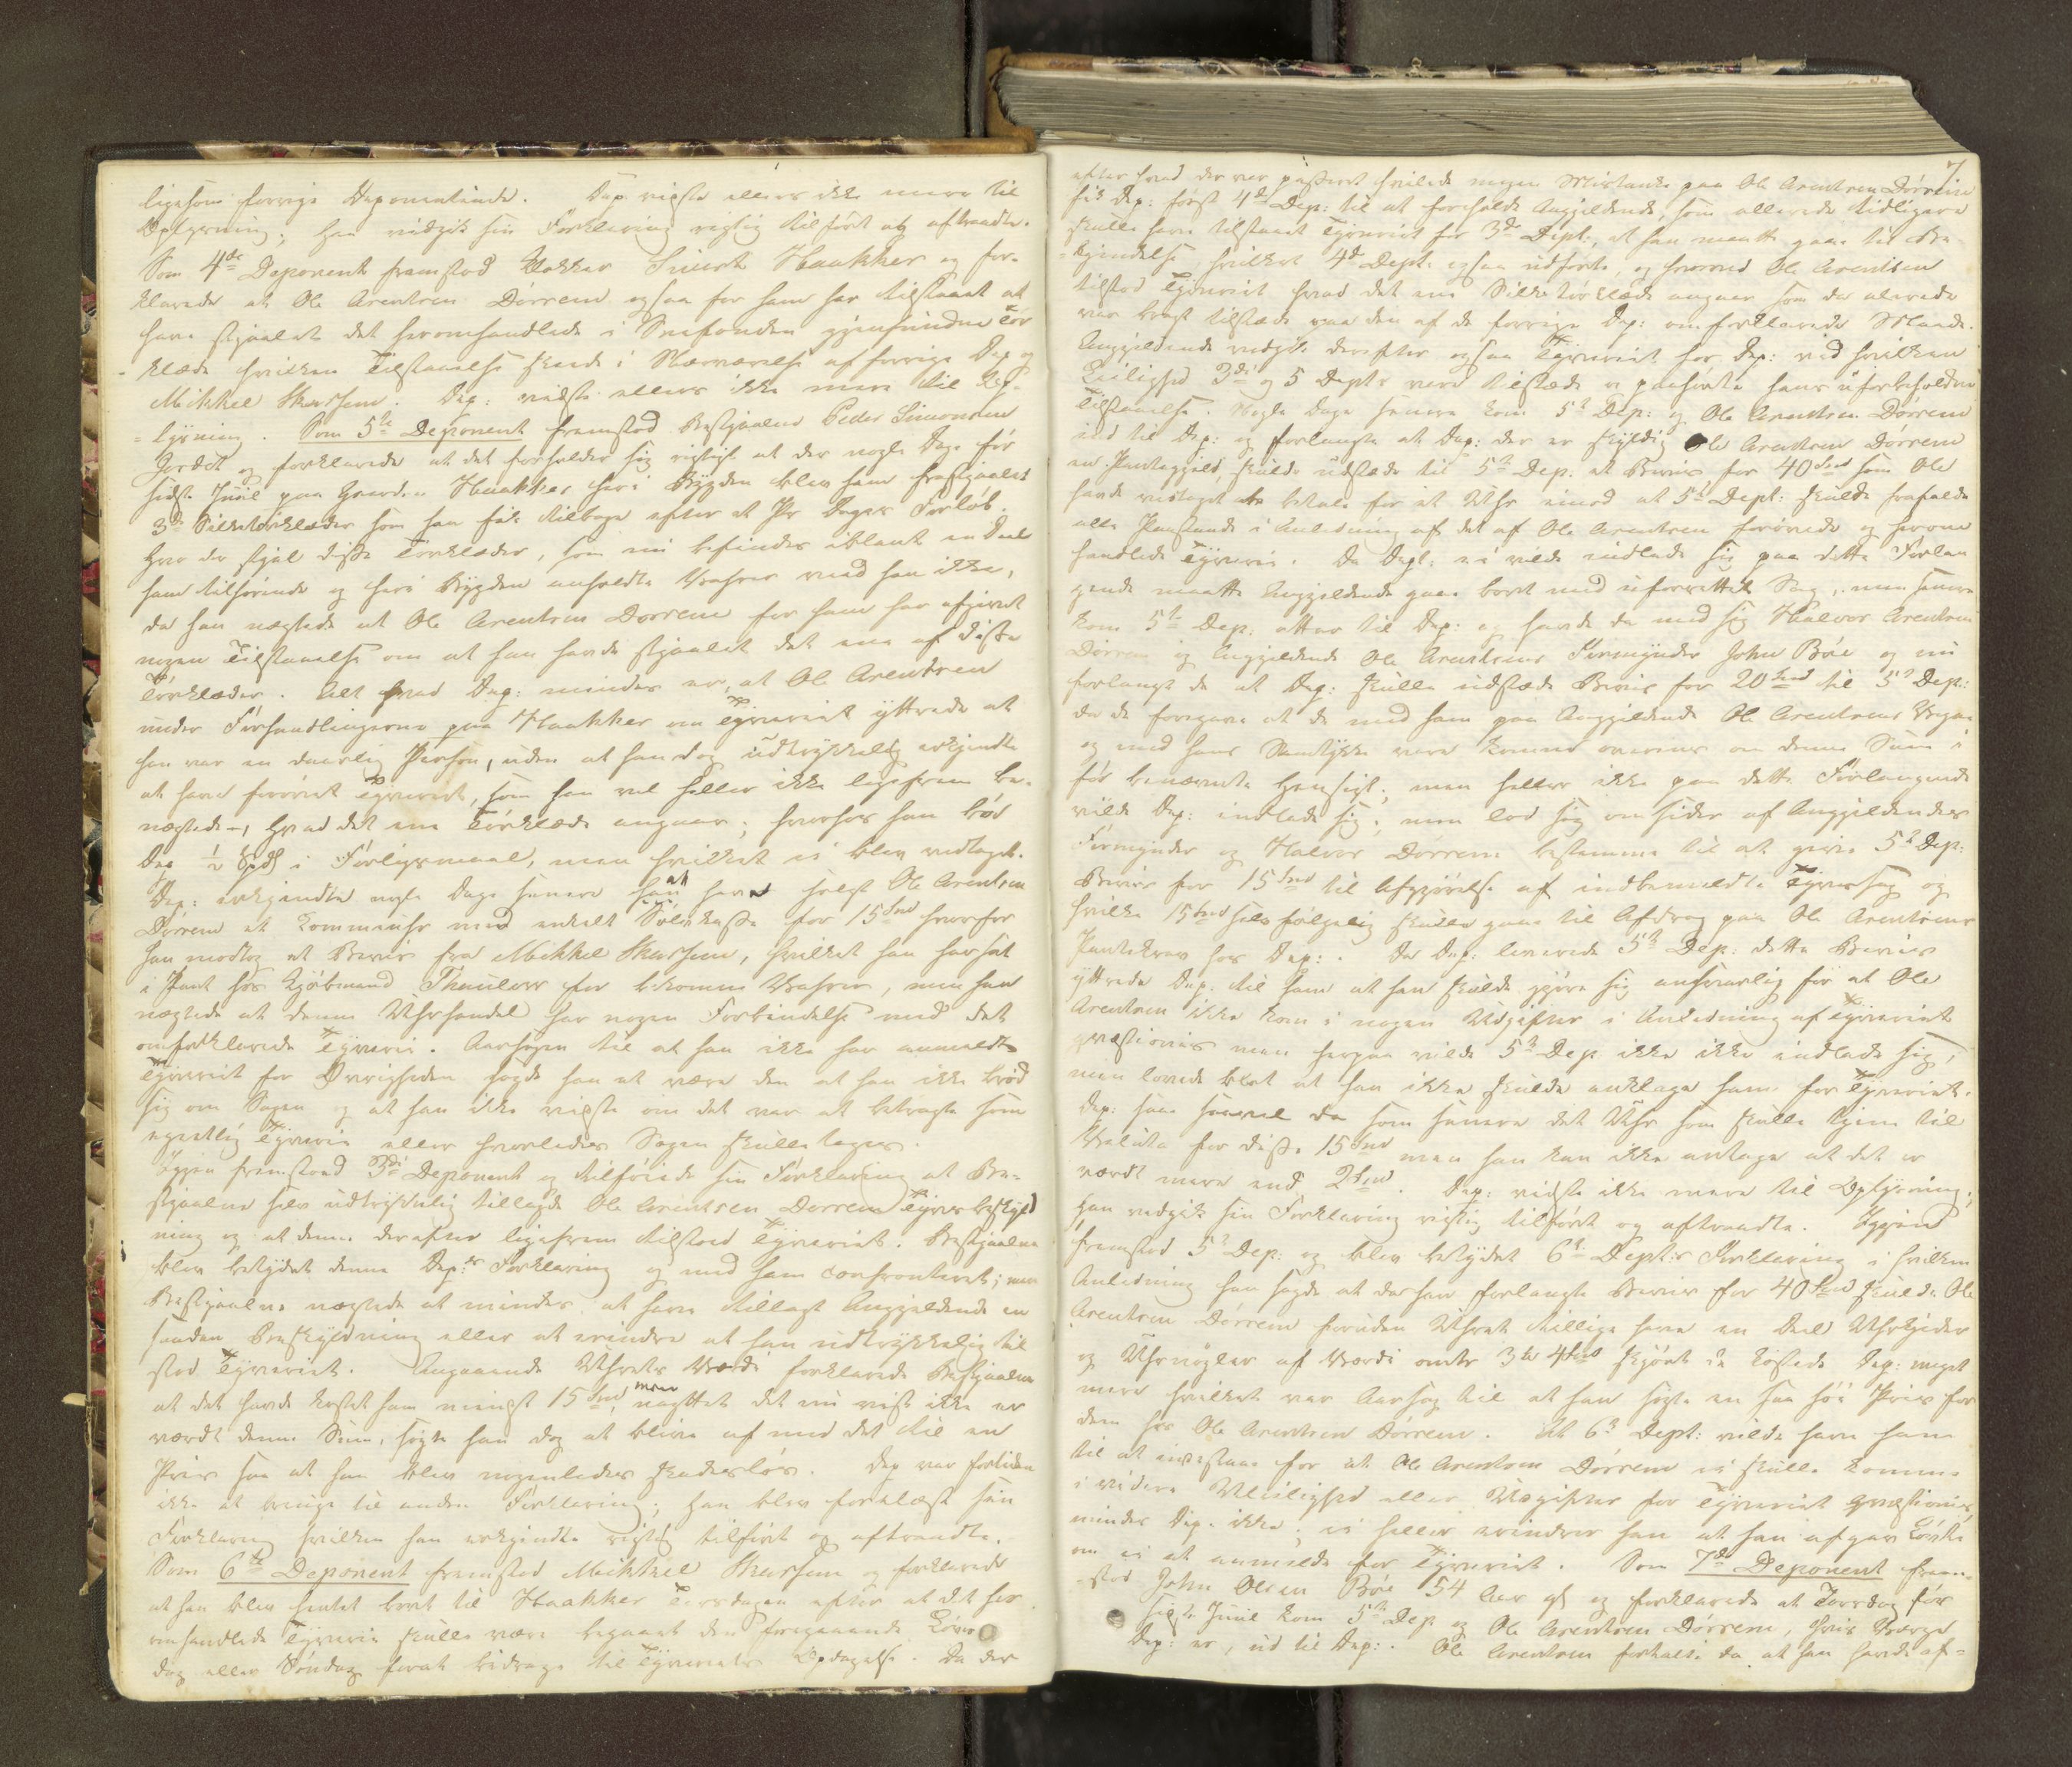 ligesom forrige Deponentinde. Dep. vidste ellers ikke mere til
Oplysning; han vedgik sin Forklaring rigtig tilført og aftraadte.
Som 4de Deponent fremstod Klokker Sivert Haakker og for-
klarede at Ole Arentsen Dørrem ogsaa for ham har tilstaaet at
have stjaalet det heromhandlede i gjenfundne Tør
klæde hvilken Tilstaaelse skede i Nærværelse af forrige Dep og
Mikkel . Dep: vidste ellers ikke mere til Op-
lysning. Som 5te Deponent fremstod Bestjaalne Peder Simonsen
Jordet og forklarede at det forholder sig rigtigt at der nogle Dage før
sidste Juul paa Gaarden Haakker her i Bygden blev ham frastjaalet
3de Silketørklæder som han fik tilbage efter et Par Dages Forløb.
Hvo der stjal disse Tørklæder, som nu befindes iblant en Deel
ham tilhørende og her i Bygden anholdte Vahrer veed han ikke,
da han nægtede at Ole Arentsen Dørrem for ham har afgivet
nogen Tilstaaelse om at han havde stjaalet det ene af disse
Tørklæder. Alt hvad Dep: mindes er, at Ole Arentsen
under Forhandlingerne paa Haakker om Tyveriet yttrede at
han var en daarlig Person, uden at han dog udtrykkelig erkjendte
at have forøvet Tyveriet, som han vel heller ikke ligefrem be-
nægtede, hvad det ene Tørklæde angaaer; hvorhos han bød
Dep ½ Spd i Forligsmaal, men hvilket ei blev vedtaget.
Dep: erkjendte nogle Dage senere at have solgt Ole Arentsen
Dørrem et Lommeuhr med enkelt Sølvkasse for 15 Spd hvorfor
han modtog et Beviis fra Mikkel , hvilket han har sat
i Pant hos Kjøbmand Thaulow for bekomne Vahrer, men han
nægtede at denne Uhrhandel har nogen Forbindelse med det
omforklarede Tyverie. Aarsagen til at han ikke har anmeldt
Tyveriet for Øvrigheden sagde han at være den at han ikke brød
sig om Sagen og at han ikke vidste om det var at betragte som
egentlig Tyverie eller hvorledes Sagen skulle tages.
Igjen fremstod 3die Deponent og tilføiede sin Forklaring at Be-
stjaalne selv udtrykkelig tillagde Ole Arentsen Dorrem Tyvsbeskyld
ning og at denne derefter ligefrem tilstod Tyveriet. Bestjaalne
blev betydet denne Dep:s Forklaring og med ham confronteret; men
Bestjaalne nægtede at mindes at have tillagt Angjeldende en
saadan Beskyldning eller at erindre at han udtrykkelig til
stod Tyveriet. Angaaende Uhrets Værdi forklarede Bestjaalne
at det havde kostet ham mindst 15 Spd, men uagtet det nu vist ikke er
værdt denne Sum, søgte han dog at blive af med det til en
Priis saa at han blev nogenledes skadesløs. Dep var forliden
ikke at bringe til anden Forklaring; han blev forelæst sin
Forklaring hvilken han erkjendte rigtig tilført og aftraadte.
Som 6te Deponent fremstod Mikkel og forklarede
at han blev hentet bort til Haakker Tirsdagen efter at det her
omhandlede Tyverie skulle være begaaet den foregaaende Løver
dag eller Søndag forat bidrage til Tyveriets Opdagelse. Da der
7
efter hvad der var passeret hvilede nogen Mistanke paa Ole Arentsen Dørrem
fik Dep: først 4de Dep: til at foreholde Angjeldende, som allerede tidligere
skulle have tilstaaet Tyveriet for 3de Dept:, at han maatte gaae til Be-
kjendelse, hvilket 4de Dept: ogsaa udførte, og hvorved Ole Arentsen
tilstod Tyveriet hvad det ene Silketørklæde angaaer som da alerede
var bragt tilstæde paa den af de forrige Dep: omforklarede Maade.
Angjeldende vedgik derefter ogsaa Tyveriet for Dep: ved hvilken
Leilighed 3die og 5 Depts vare tilstæde og paahørte hans uforbeholdne
Tilstaaelse. Nogle Dage senere kom 5te Dep: og Ole Arentsen Dørrem
ind til Dep: og forlangte at Dep: der er skyldig Ole Arentsen Dørrem
en Pantegjeld, skulde udstæde til 5te Dep. et Beviis for 40 Spd som Ole
havde vedtaget at betale for et Uhr imod at 5te Dept: skulde frafalde
alle Paastande i Anledning af det af Ole Arentsen forøvede og herom
handlede Tyverie. Da Dept: ei vilde indlade sig paa dette Forlan
gende maatte Angjeldende gaae bort med uforrettet Sag, men senere
kom 5te Dep: atter til Dep: og havde da med sig Halvor Arentsen
Dørrem og Angjeldende Ole Arentsens Formynder John Bøe og nu
forlangte de at Dep: skulle udstæde Beviis for 20 Spd til 5te Dep:
da de foregave at de med ham paa Angjeldende Ole Arentsens Vegne
og med hans Samtykke vare komne overeens om denne Sum i
før benævnte Hensigt; men heller ikke paa dette Forlangende
vilde Dep: indlade sig; men lod sig omsider af Angjeldendes
Formynder og Halvor Dorrem bestemme til at give 5te Dep:
Beviis for 15 Spd til Afgjørelse af indbemeldte Tyvssag og
hvilke 15 Spd selvfølgelig skulle gaae til Afdrag paa Ole Arentsens
Pantekrav hos Dep:. Da Dep: leverede 5te Dep: dette Beviis
yttrede Dep. til ham at han skulde gjøre sig ansvarlig for at Ole
Arentsen ikke kom i nogen Udgifter i Anledning af Tyveriet
qvæstionis men herpaa vilde 5te Dep ikke ikke indlade sig,
men lovede blot at han ikke skulde anklage ham for Tyveriet.
Dep: saae saavel da som senere det Uhr som skulle tjene til
Valuta for disse 15 Spd men han kan ikke antage at det er
værdt mere end 2 Spd. Dep: vidste ikke mere til Oplysning;
han vedgik sin Forklaring rigtig tilført og aftraadte. Igjen
fremstod 5te Dep: og blev betydet 6te Dept:s Forklaring i hvilken
Anledning han sagde at da han forlangte Beviis for 40 Spd skulde Ole
Arentsen Dørrem foruden Uhret tillige have en Deel Uhrkjeder
og Uhrnøgler af Værdi omtr 3 à 4 Spd skjønt de kostede Dep: meget
mere hvilket var Aarsag til at han søgte en saa høi Priis for
dem hos Ole Arentsen Dørrem. At 6te Dept: vilde have ham
til at indestaae for at Ole Arentsen Dørrem ei skulle komme
i videre Uleilighed eller Udgifter for Tyveriet qvæstionis
mindes Dep: ikke; ei heller erindrer han at han afgav Løvte
om ei at anmelde for Tyveriet. Som 7de Deponent frem-
stod John Olsen Bøe 54 Aar gl og forklarede at Torsdag før
sidste Juul kom 5te Dep og Ole Arentsen Dørrem, hvis Værge
Dep: er, ud til Dep:. Ole Arentsen fortalte da at han havde af-